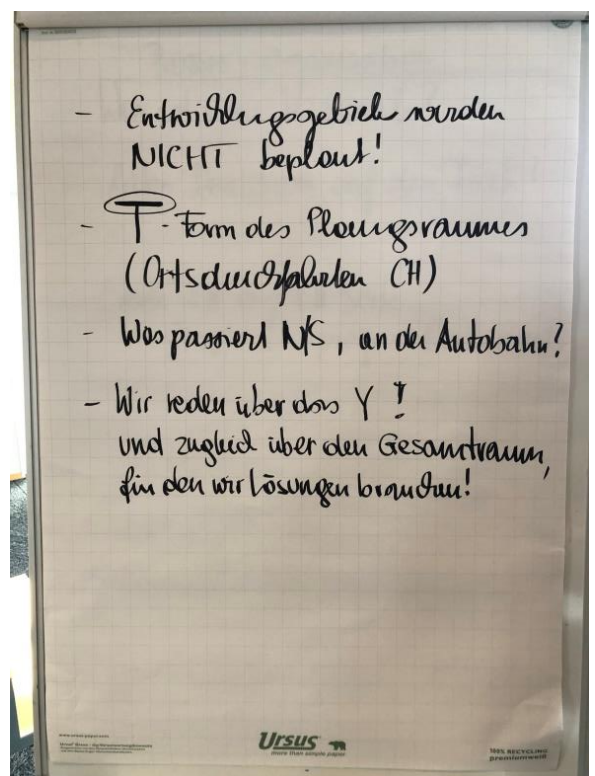 - Entwicklungsgebiete werden
NICHT beplant!
- T-Form des Planungsraumes
(Ortsdurchfahrten CH)
- Was passiert N/S, an der Autobahn?
- Wir reden über das Y!
und zugleich über den Gesamtraum,
für den wir Lösungen brauchen!
www.ursus-paper.com
Ursus
more than simple paper
100% RECYCLING
premiumweiß